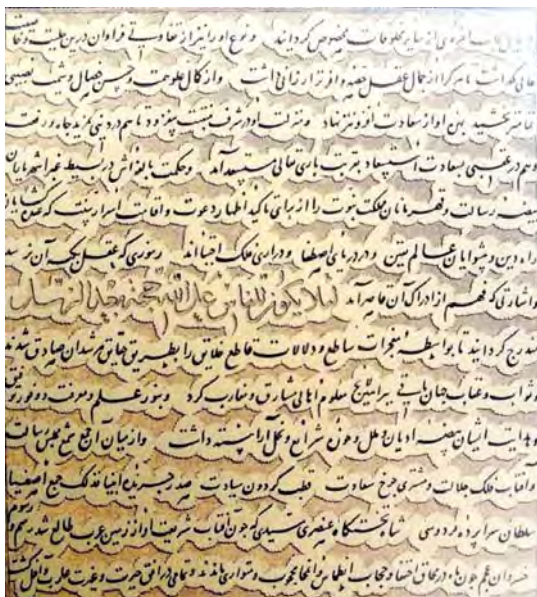 از سایر مخلوقات مخصوص گردانید و نوع او را نیز از تفاوتی فراوان درین
عالی که داشت تا هر کرا از جمال عقل حصه وافرتر ارزانی داشت و از کمال علو همت و حسن خصال و شیمت نصیبی
کاملتر بخشید بهره او از سعادت افزونتر نهاد و منزلت او در شرف
سعادت استسعاد بقربت باری تعالی مستسعد آمد و حکمت بالغه اش در بسیط غبرا
رسالت و قهرمانان مملکت نبوت را از برای تاکید اظهار دعوت و افاضت اسرار
راه دین و پیشوایان عالم یقین و در دریای اصطفا و دراری فلک اجتبااند رموزی که عقل بکنه آن نرسد
و اشارتی که فهم از ادراک آن قاصر آمد لئلا یکون للناس علی الله حجة بعد الرسل
مندرج گردانید تا بواسطه معجزات ساطع و دلالات قاطع خلایق را بطریق حقایق مرشدان صادق شدند
و ثواب و عقاب جهان باقی معلوم اهالی مشارق و مغارب کرد و بنور علم و معرفت و وفور
و هدایت ایشان بیضه ادیان و ملل و متون شرایع و نحل آراسته داشت و از میان آن جمع شمع مجلس رسالت
و آفتاب فلک جلالت و مشتری چرخ سعادت قطب گردون سیادت صدر جریده انبیا جمع اصفیا
سلطان سراپرده فردوسی شاه تختگاه عنصری سیدی که چون آفتاب شریعت او از زمین عرب طالع شد
خسروان عجم چون در محاق اختفا و حجاب انطماس و انمحا محجوب و متواری ماندند و تمامی در افق حیرت و غیرت